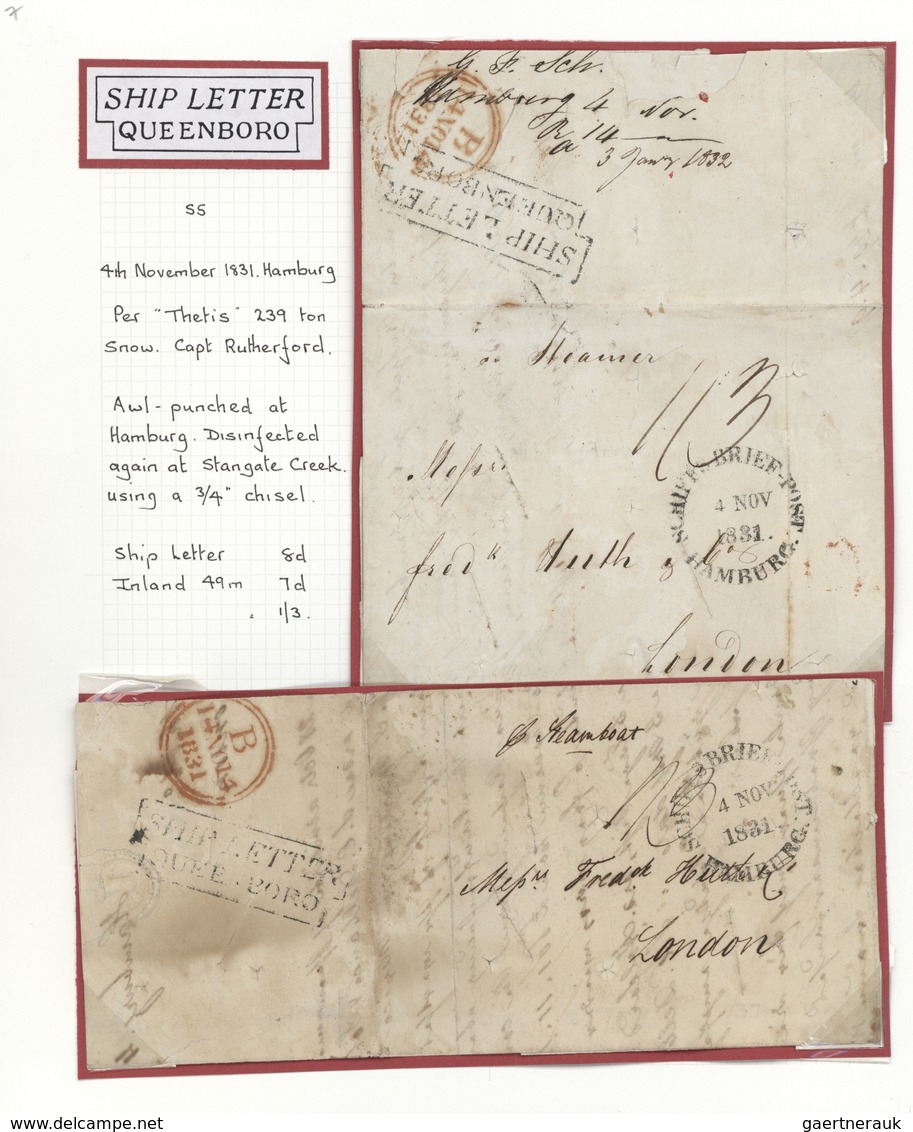 SHIP LETTER
QUEENBORO
SS
4th November 1831. Hamburg
Per "Thetis" 239 ton
Snow. Capt Rutherford.
Awl-punched at
Hamburg. Disinfected
again at Stangate Creek.
using a 3/4" chisel.
Ship Letter 8d
Inland 49m 7d
1/3.
G. F. Sch.
Hamburg 4 Nov.
Ra 14
3 Janry 1832
B
14 NO 14
1831
SHIP LETTER
QUEENBORO
Steamer
1/3
Messrs
Fredk Huth & Co
London
SCHIFFS BRIEF-POST
4 NOV
1831.
HAMBURG.
B
14 NO 14
1831
SHIP LETTER
QUEENBORO
p Steamboat
1/3
SCHIFFS BRIEF-POST
4 NOV
1831
HAMBURG.
Messrs Fredk Huth & Co
London
gaertnerauk